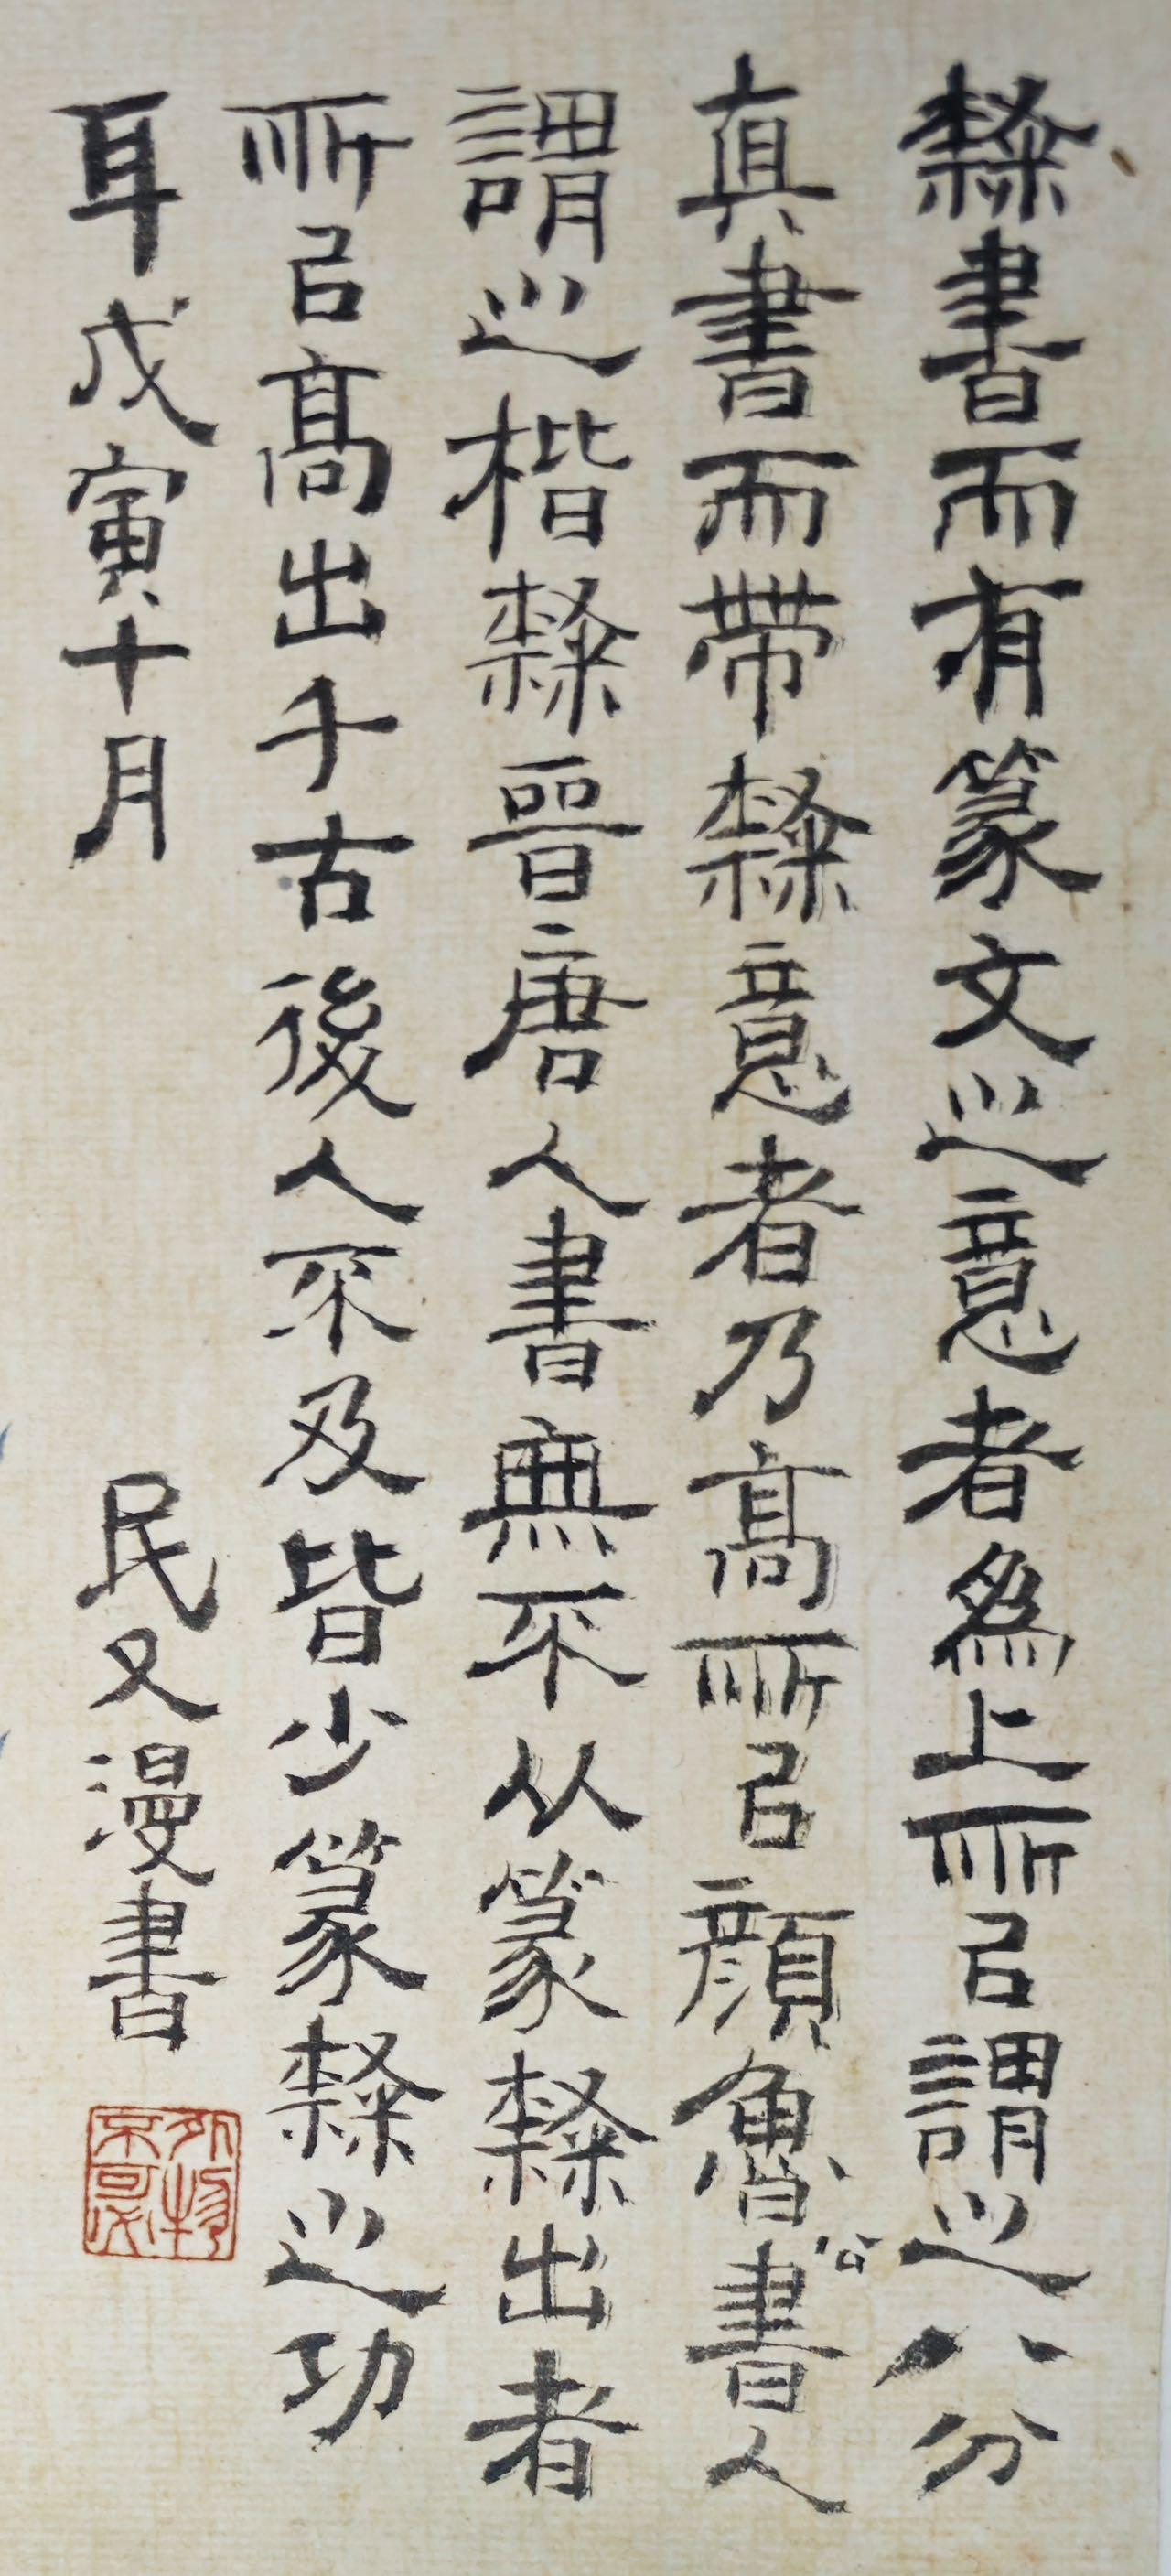 隸書而有篆文之意者為上所㠯謂之八分
真書而帶隸意者乃高所㠯顏魯公書人
謂之楷隸晉唐人書無不从篆隸出者
所㠯高出千古後人不及皆少篆隸之功
耳戊寅十月
民又漫書